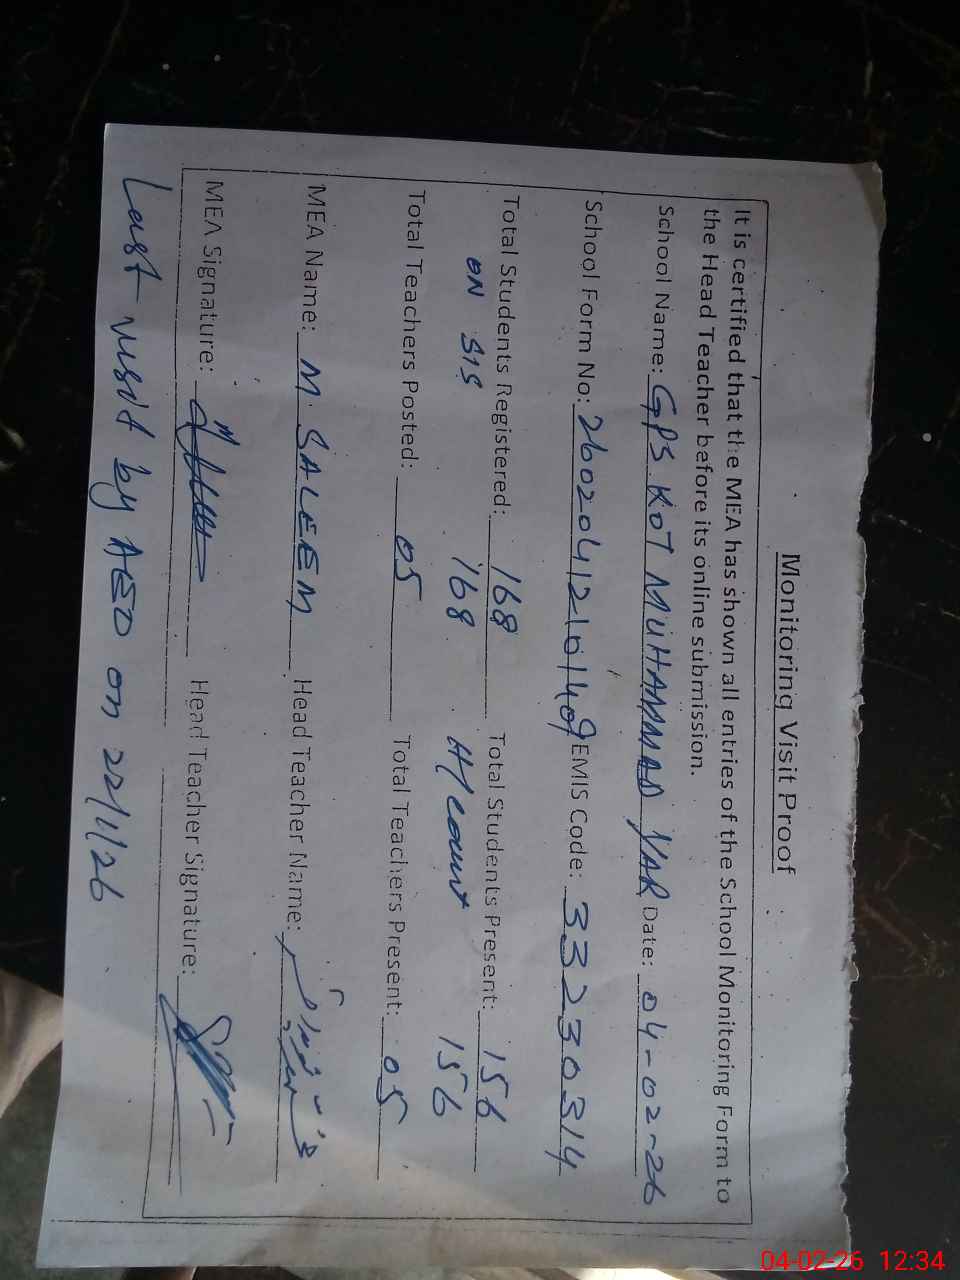 Monitoring Visit Proof
It is certified that the MEA has shown all entries of the School Monitoring Form to
the Head Teacher before its online submission.
School Name: GPS KOT MUHAMMAD YAR Date: 04-02-26
School Form No: 26020412101409 EMIS Code: 33230314
Total Students Registered: 168 Total Students Present: 156
ON SIS 168 H/Count 156
Total Teachers Posted: 05 Total Teachers Present: 05
MEA Name: M. SALEEM Head Teacher Name:
MEA Signature: Head Teacher Signature:
Last visit by AEO on 22/1/26
04-02-26 12:34